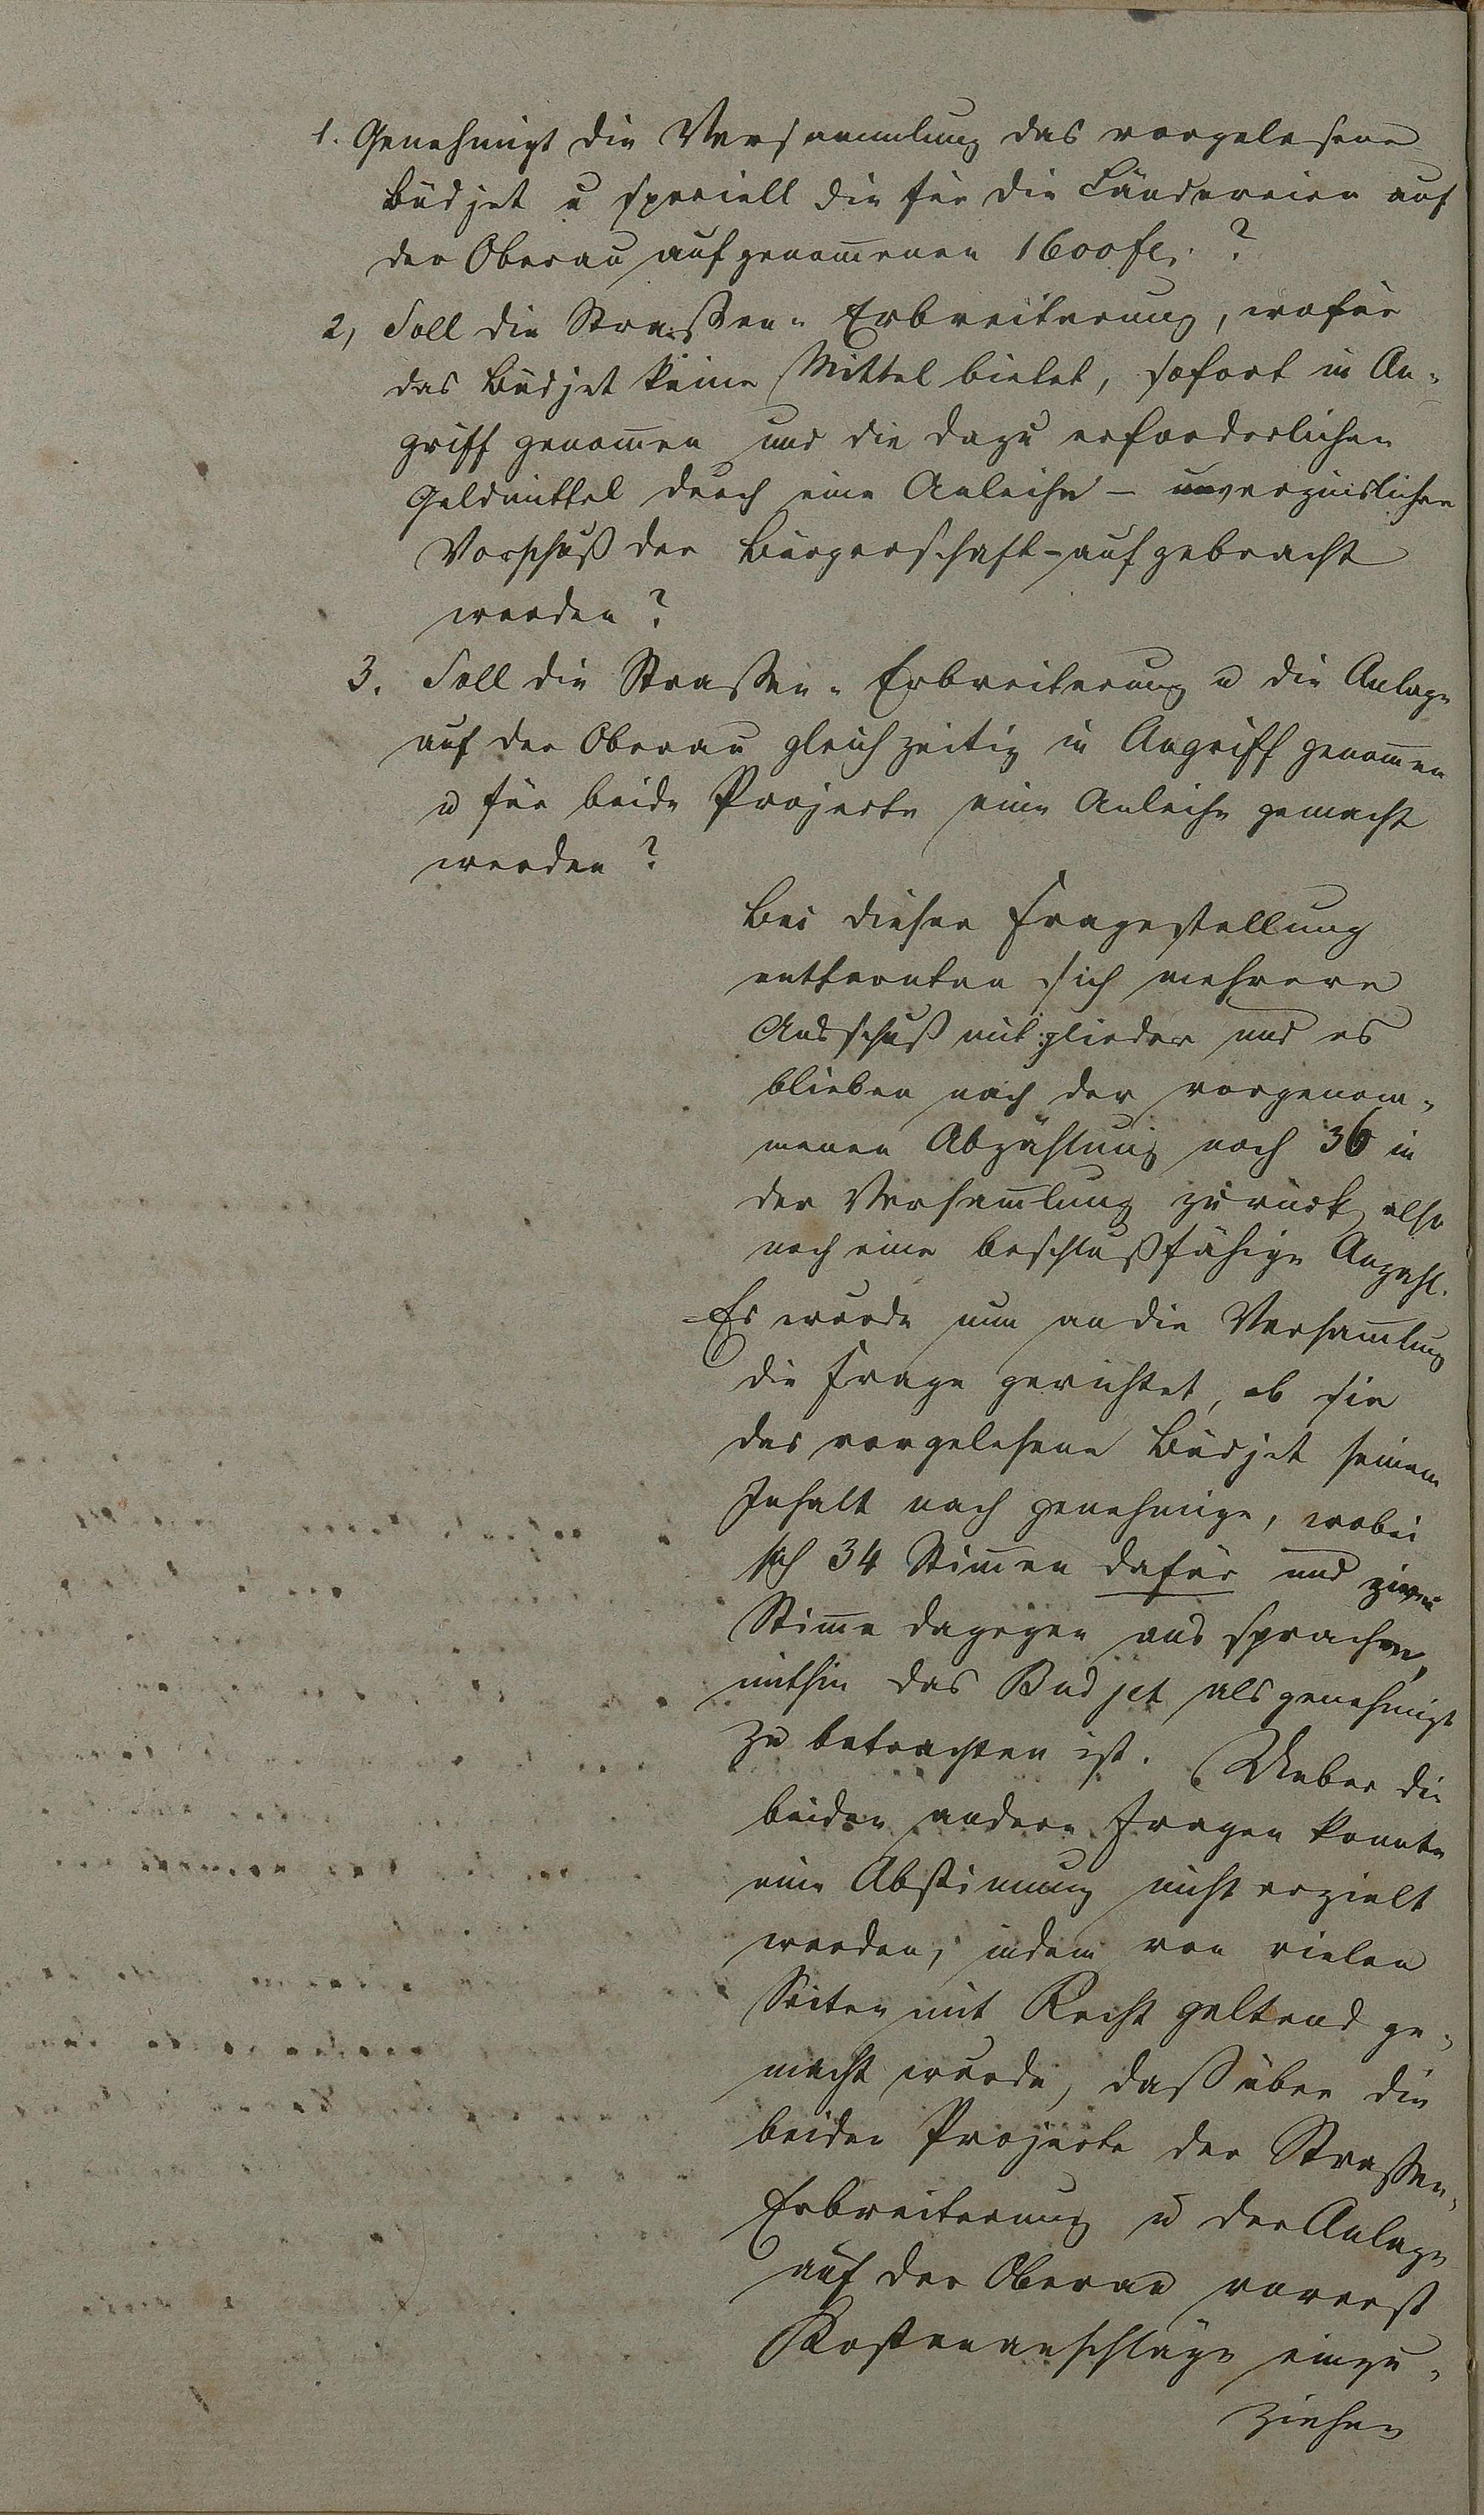 1. Genehmigt die Versammlung das vorgelesene
Büdjet u speciell die für die Ländereien auf
der Oberau aufgenom̅enen 1600 fl. ?
2, Soll die Straßen- Erbreiterung, wofür
das Büdjet keine Mittel bietet, sofort in An-
griff genom̅en und die dazu erforderlichen
Geldmittel durch eine Anleihe - unverzinslichen
Vorschuß der Bürgerschaft - aufgebracht
werden ?
3. Soll die Straßen- Erbreiterung u die Anlage
auf der Oberau gleichzeitig in Angriff genom̅en
u für beide Projecte eine Anleihe gemacht
werden ?
Bei dieser Fragestellung
entfernten sich mehrere
Ausschußmitglieder und es
blieben nach der vorgenom-
menen Abzählung noch 36 in
der Versam̅lung zurück also
noch eine beschlußfähige Anzahl.
Es wurde nun an die Versam̅lung
die Frage gerichtet, ob sie
das vorgelesene Büdjet seinem
Inhalt nach genehmige, wobei
sich 34 Stim̅en dafür und zwei
Stim̅e dagegen aussprachen,
mithin das Budjet als genehmigt
zu betrachten ist. Ueber die
beiden andern Fragen konnte
eine Abstim̅ung nicht erzielt
werden, indem von vielen
Seiten mit Recht geltend ge-
macht wurde, daß über die
beiden Projecte der Straßen-
Erbreiterung u der Anlage
auf der Oberau vorerst
Kostenanschläge einzu-
ziehen